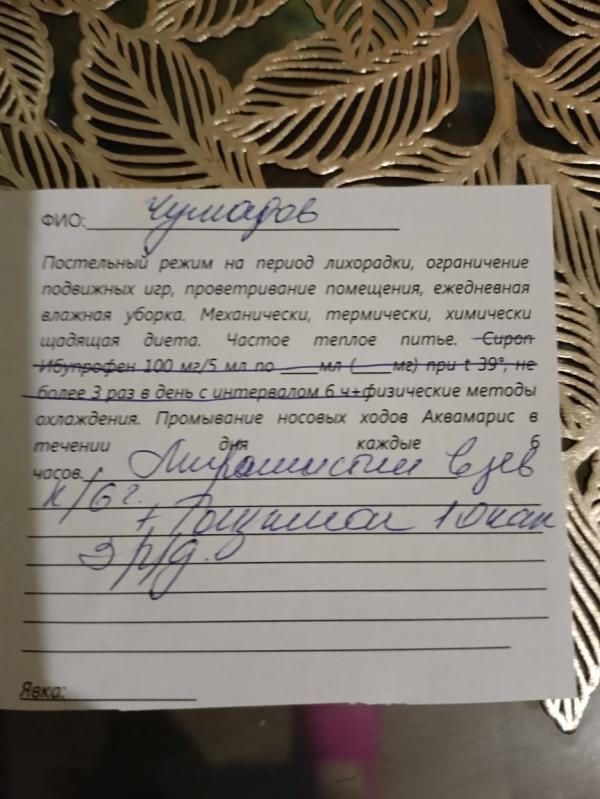 ФИО: Чумадов
Постельный режим на период лихорадки, ограничение
подвижных игр, проветривание помещения, ежедневная
влажная уборка. Механически, термически, химически
щадящая диета. Частое теплое питье. Сироп
Ибупрофен 100 мг/5 мл по ____мл (____мг) при t 39°, не
более 3 раз в день с интервалом 6 ч+физические методы
охлаждения. Промывание носовых ходов Аквамарис в
течении дня каждые 6
часов. Мирамистин в зев
3 р/д.
Явка: